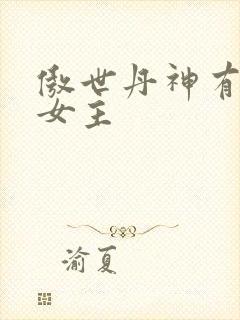 傲世丹神有
女主
渝夏